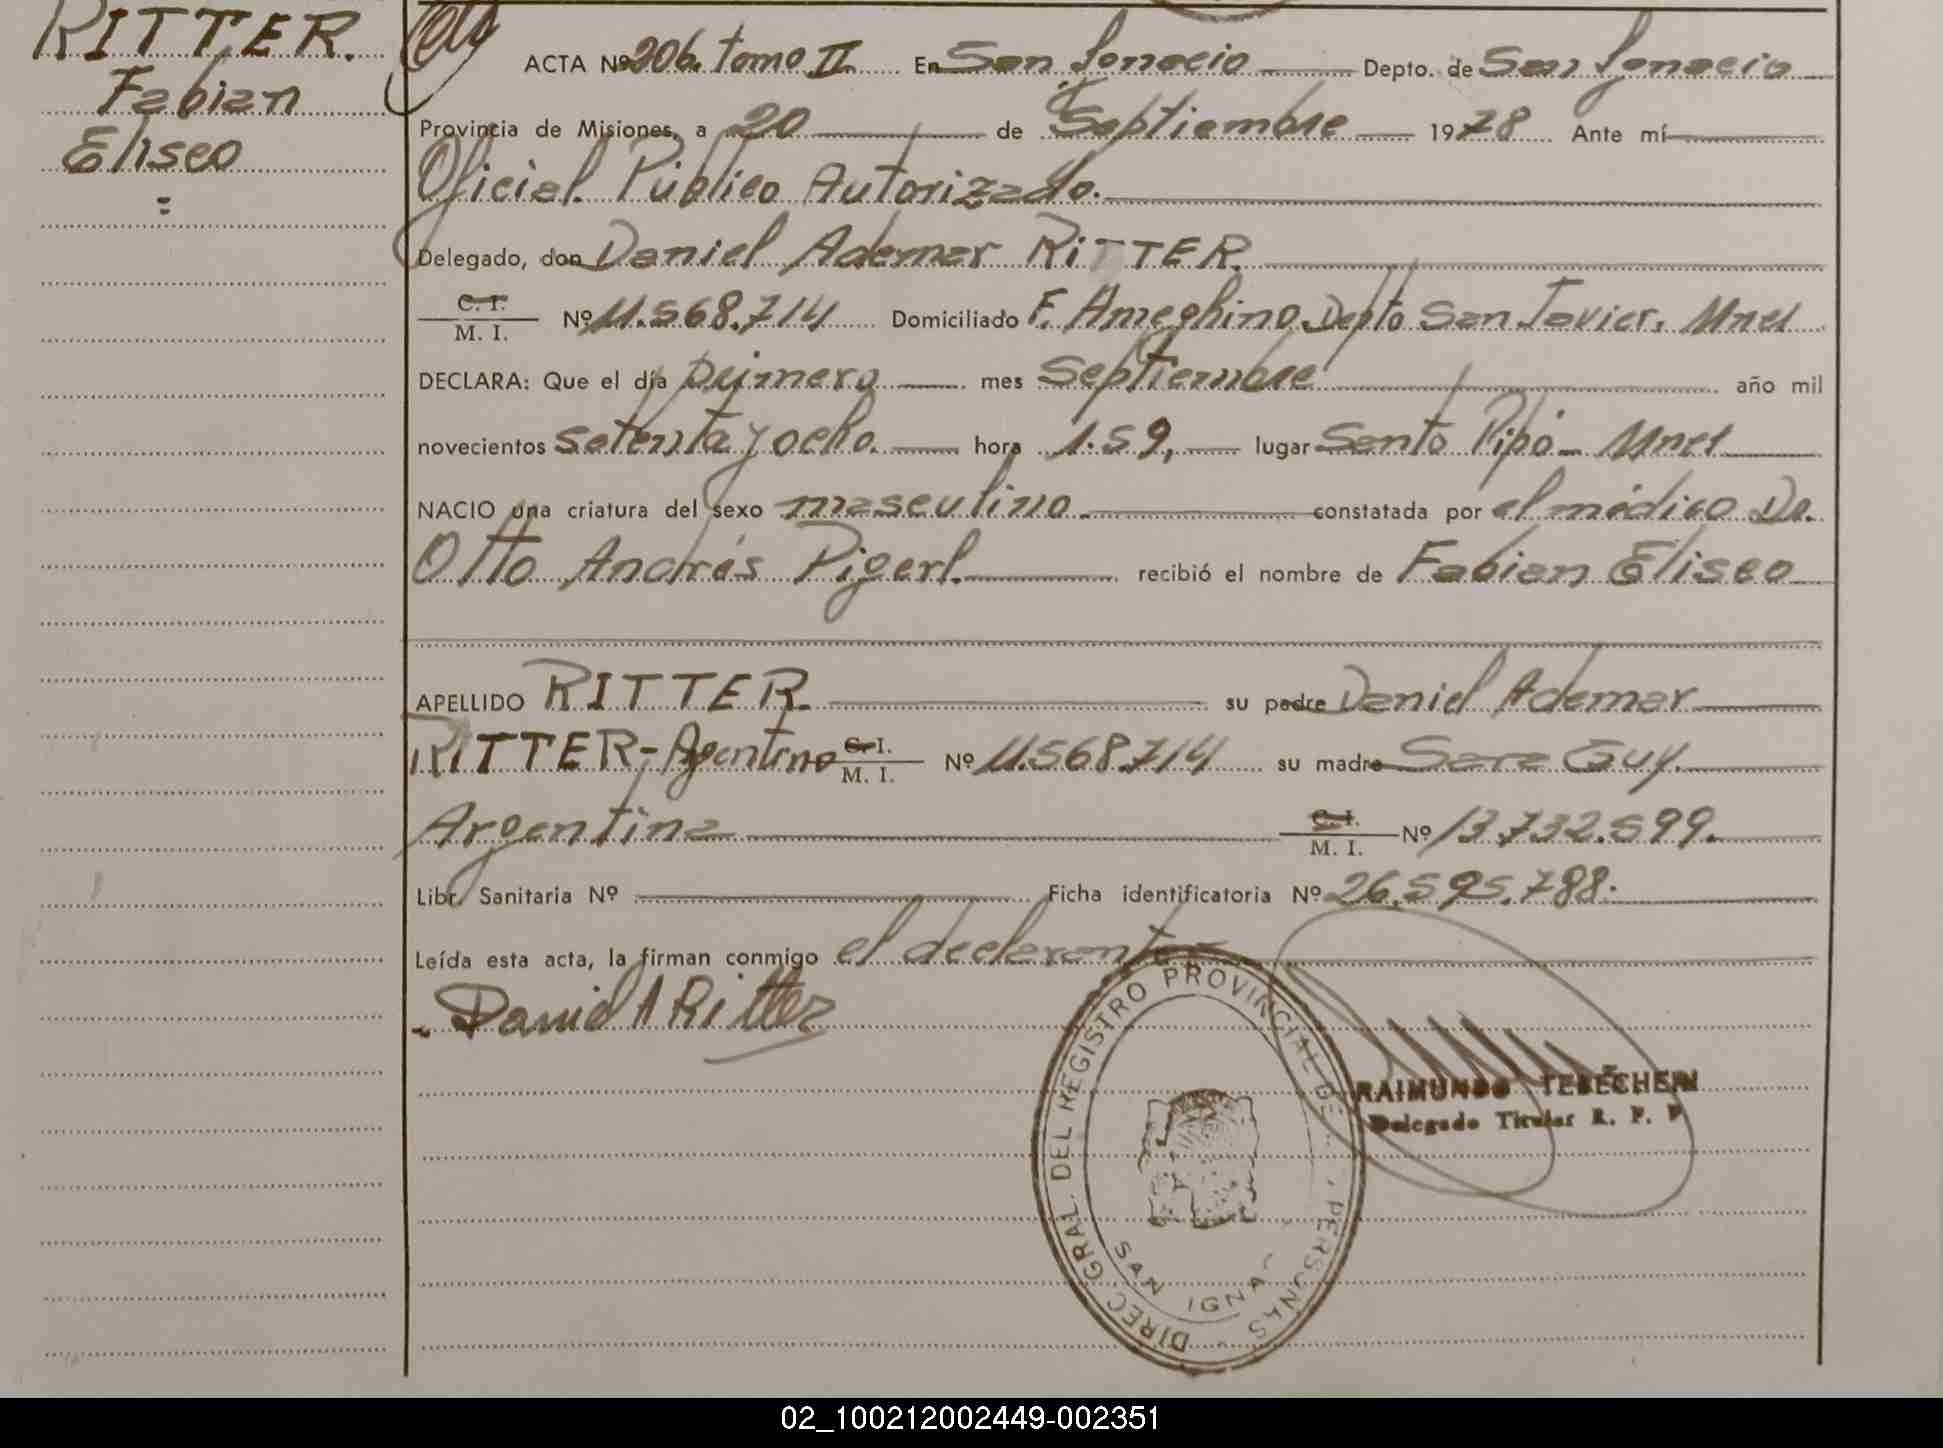 RITTER.
Fabian
Eliseo
=
ACTA Nº 206. tomo II En San Ignacio Depto. de San Ignacio
Provincia de Misiones, a 20 de Septiembre 1978 Ante mí
Oficial Público Autorizado.
Delegado, don Daniel Ademar RITTER.
C. I.
M. I.
Nº 11.568.714 Domiciliado F. Ameghino Depto San Javier, Mnes
DECLARA: Que el día primero mes Septiembre año mil
novecientos setenta y ocho. hora 1.59, lugar Santo Pipó - Mnes
NACIO una criatura del sexo masculino constatada por el médico Dr.
Otto Andrés Pigerl. recibió el nombre de Fabian Eliseo
APELLIDO RITTER. su padre Daniel Ademar
RITTER - Argentino C. I.
M. I.
Nº 11.568.714 su madre Sara Guy.
Argentina C. I.
M. I.
Nº 13.732.599.
Libr. Sanitaria Nº Ficha identificatoria Nº 26.595.788.
Leída esta acta, la firman conmigo el declarante
Daniel A Ritter
DIREC GRAL. DEL REGISTRO PROVINCIAL DE PERSONAS
SAN IGNAC
RAIMUNDO
Delegado Titular R. P. P
02_100212002449-002351